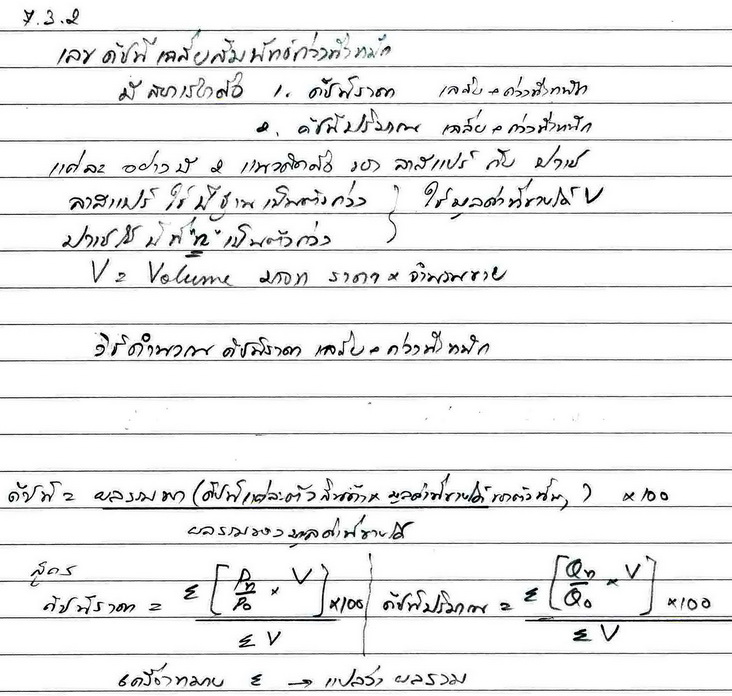 7.3.2
เลข ดัชนี เฉลี่ยสัมพัทธ์ถ่วงน้ำหนัก
มี 1. ดัชนีราคา เฉลี่ย + ถ่วงน้ำหนัก
2. ดัชนีปริมาณ เฉลี่ย + ถ่วงน้ำหนัก
แต่ละ อย่าง มี 2 แนวคิดคือ ของ ลาสแปร์ กับ ปาเช
ลาสแปร์ ใช้ ปีฐาน เป็นตัวถ่วง } ใช้มูลค่าที่ขายได้ V
ปาเช ใช้ ปีที่ "n" เป็นตัวถ่วง
V = Volume มาจาก ราคา × จำนวนขาย
วิธีคำนวณ ดัชนีราคา เฉลี่ย + ถ่วงน้ำหนัก
ดัชนี = ผลรวมของ (ดัชนีแต่ละตัวสินค้า × มูลค่าที่ขายได้ของตัวนั้น) × 100
ผลรวมของมูลค่าที่ขายได้
สูตร
ดัชนีราคา = Σ [Pn/Po × V] × 100 / Σ V ดัชนีปริมาณ = Σ [Qn/Qo × V] × 100 / Σ V
เครื่องหมาย Σ → แปลว่า ผลรวม